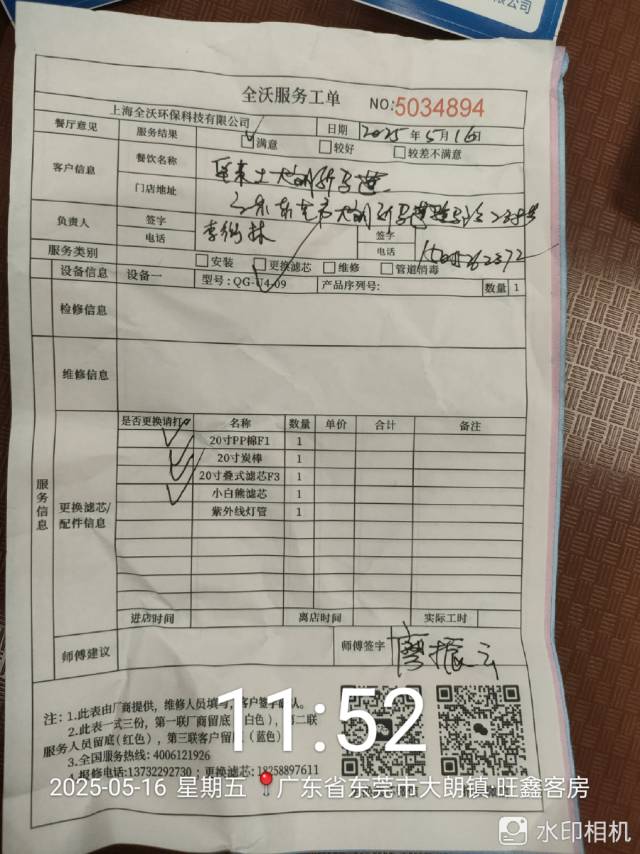 有限公司
全沃服务工单 NO:5034894
上海全沃环保科技有限公司 日期 2025年5月16日
餐厅意见 服务结果 满意 较好 较差不满意
客户信息 餐饮名称
门店地址
负责人 签字 签字
电话 电话
服务类别 安装 更换滤芯 维修 管道消毒
设备信息 设备一 型号:QG-U4-09 产品序列号: 数量 1
检修信息
维修信息
服务信息
更换滤芯/配件信息
是否更换请打✓ 名称 数量 单价 合计 备注
✓ 20寸PP棉F1 1
✓ 20寸炭棒 1
✓ 20寸叠式滤芯F3 1
✓ 小白熊滤芯 1
紫外线灯管 1
进店时间 离店时间 实际工时
师傅建议 师傅签字 廖振云
注:1.此表由厂商提供,维修人员填写,客户签字确人。
2.此表一式三份,第一联厂商留底(白色),第二联
服务人员留底(红色),第三联客户留底(蓝色)
3.全国服务热线:4006121926
4.报修电话:13732292730;更换滤芯:18258897611
11:52
2025-05-16 星期五 广东省东莞市大朗镇·旺鑫客房
水印相机